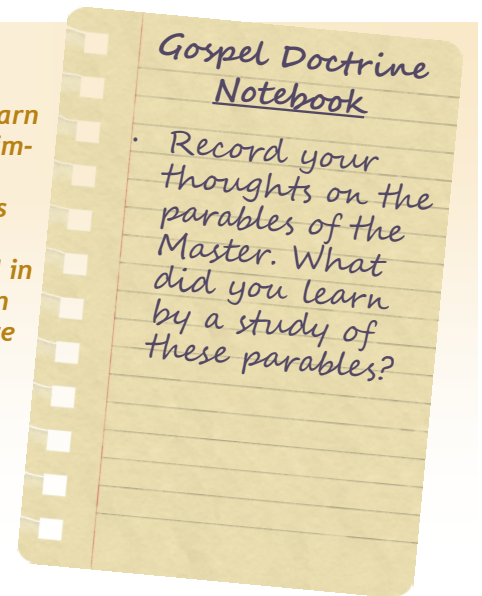 arn
im-
s
in
n
e
Gospel Doctrine
Notebook
• Record your
thoughts on the
parables of the
Master. What
did you learn
by a study of
these parables?